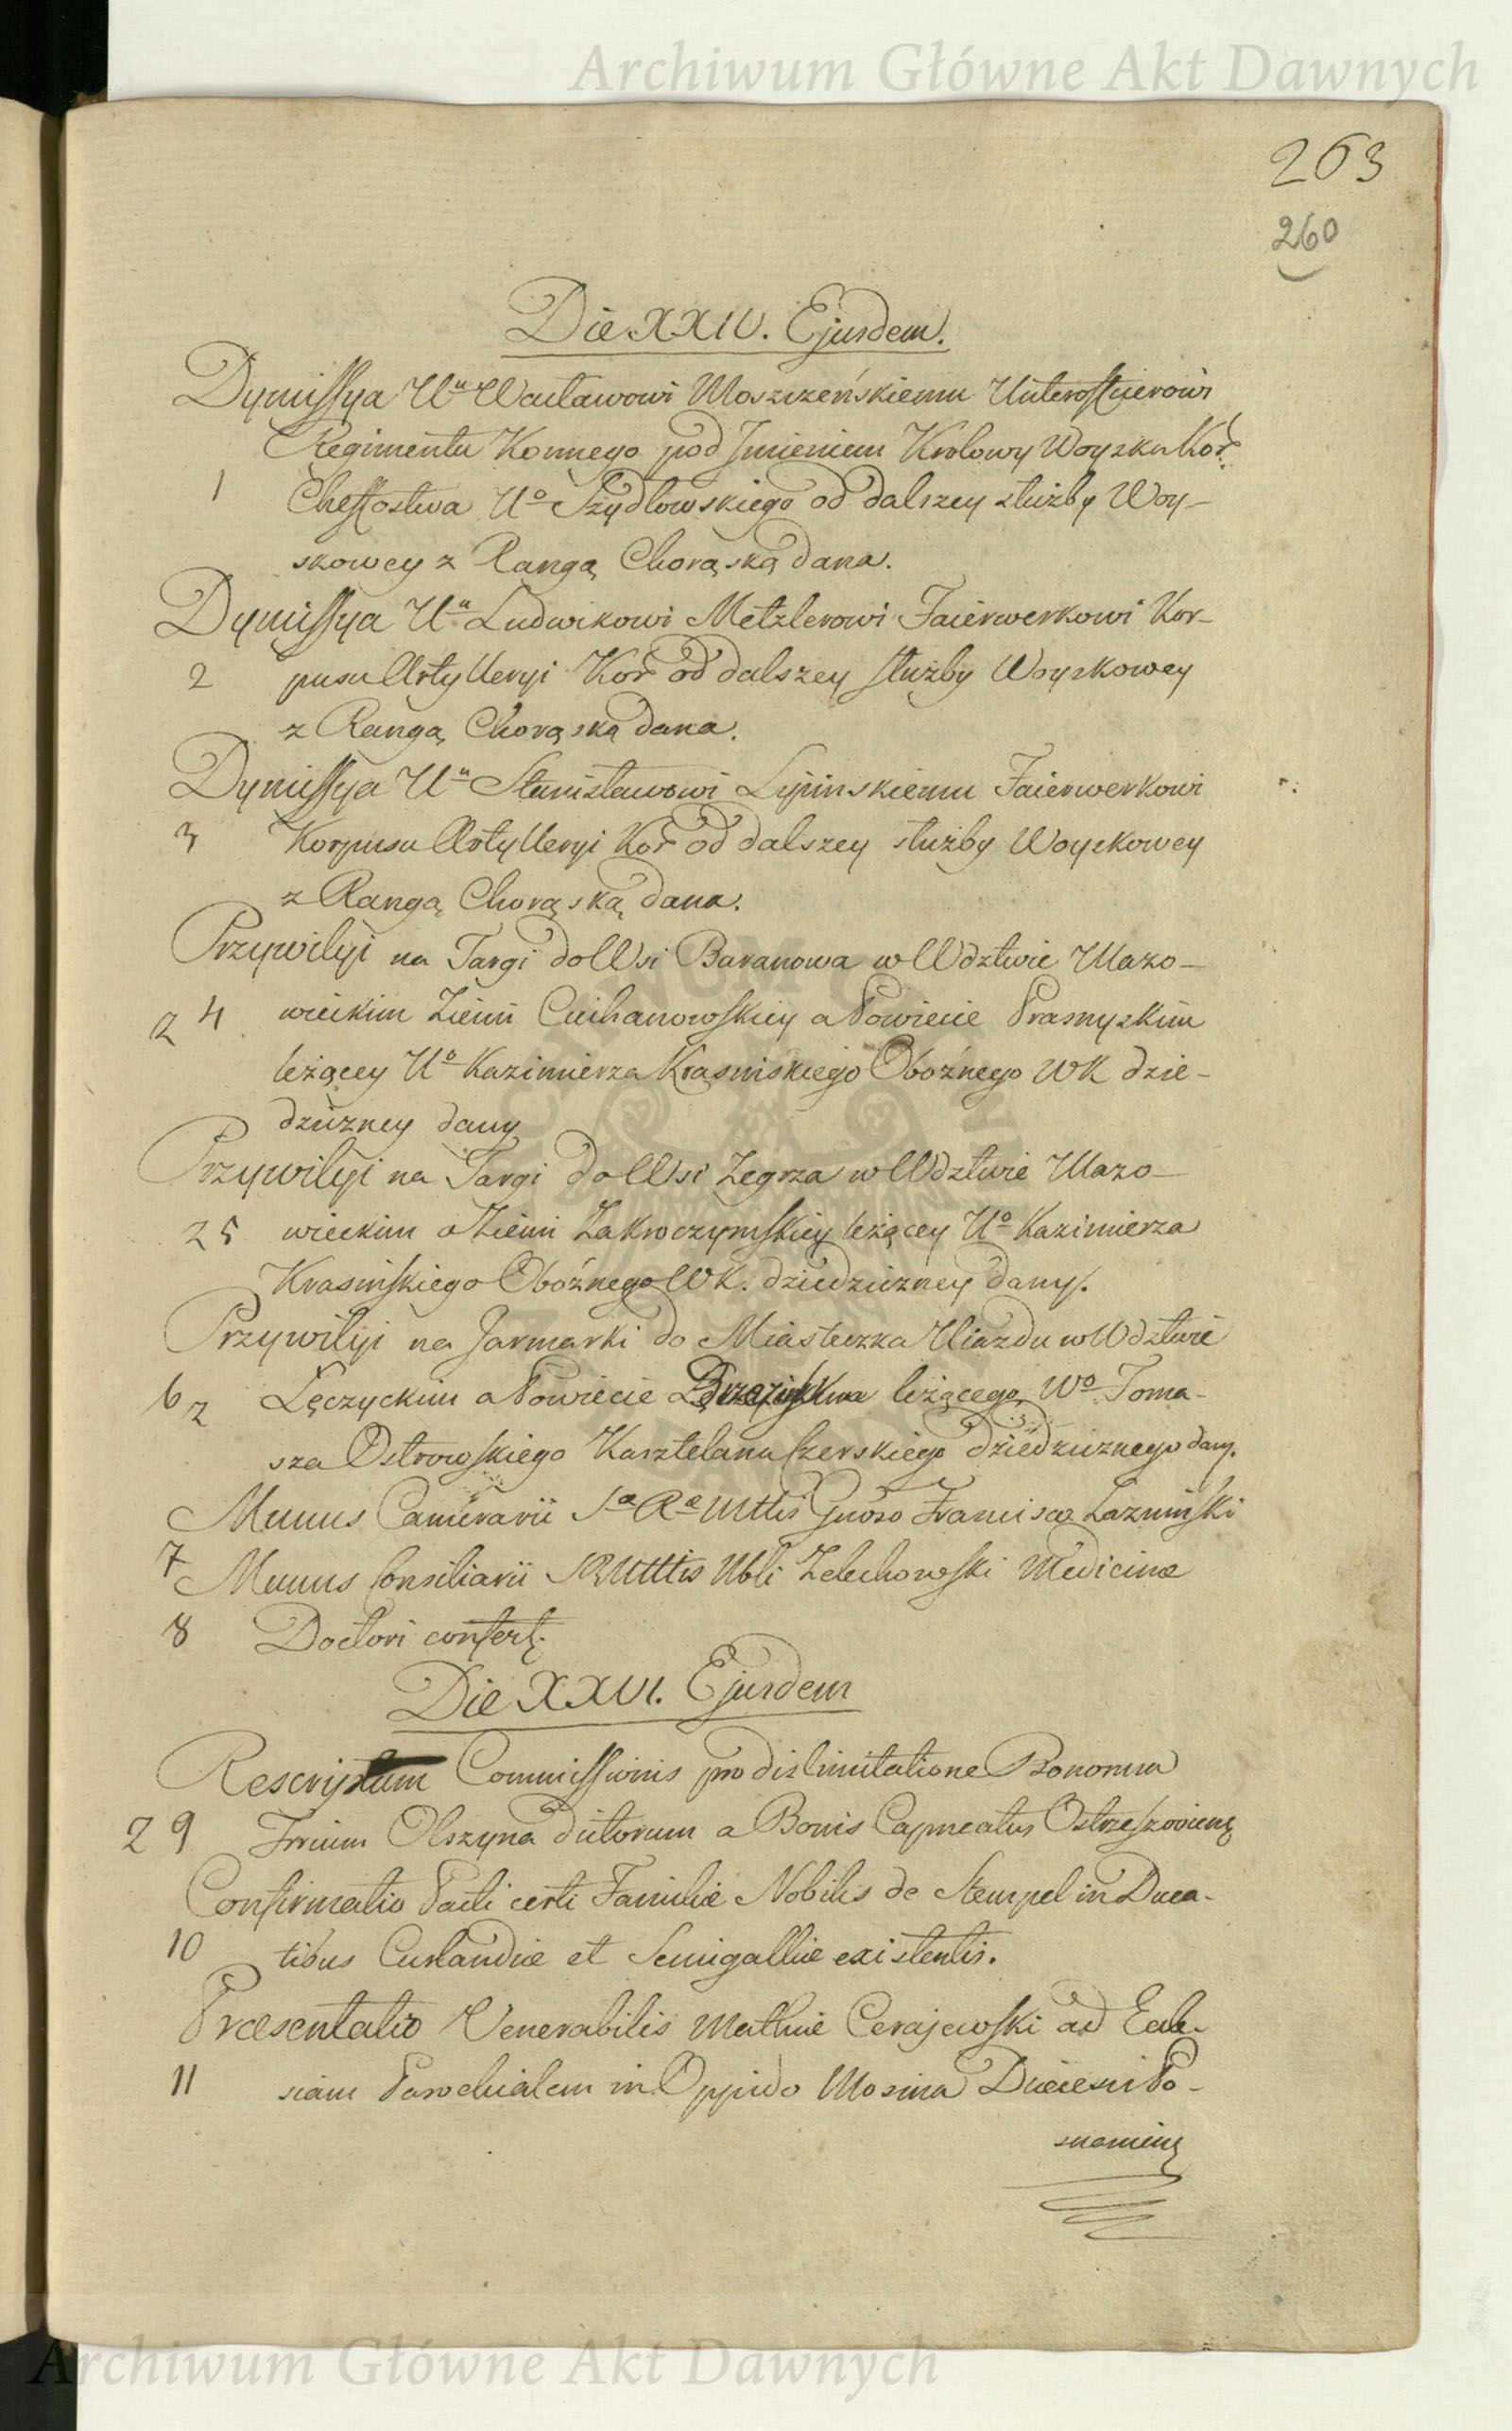 Archiwum Główne Akt Dawnych
263
260
Die XXIV. Ejusdem.
Dymissya Uu Wacławowi Moszczeńskiemu Unterofficerowi
Regimentu Konnego pod Jmieniem Krolowy Woyska Kor.
1 Cheffostwa Uo Szydłowskiego od dalszey służby Woy-
skowey z Rangą Chorąską dana.
Dymissya Uu Ludwikowi Metzlerowi Faierwerkowi Kor-
2 pusu Artylleryi Kor od dalszey służby Woyskowey
z Rangą Chorąską dana.
Dymissya Uu Stanisławowi Lipinskiemu Faierwerkowi
3 Korpusu Artylleryi Kor od dalszey służby Woyskowey
z Rangą Chorąską dana.
Przywilyi na Targi do Wsi Baranowa w Wdztwie Mazo-
2 4 wieckim Ziemi Ciechanowskiey a Powiecie Prasnyskim
leżącey Uo Kazimierza Krasinskiego Oboźnego WK dzie-
dziczney dany
Przywilyi na Targi do Wsi Zegrza w Wdztwie Mazo-
2 5 wieckim a Ziemi Zakroczymskiey leżącey Uo Kazimierza
Krasinskiego Oboźnego WK. dziedziczney dany.
Przywilyi na Jarmarki do Miasteczka Uiazdu w Wdztwie
6 2 Łęczyckim a Powiecie Brzezinskim leżącego Wo Toma-
sza Ostrowskiego Kasztelana Czerskiego dziedzicznego dany.
Munus Camerarii Sa Ra Mttis Gnoso Francisco Lazninski
7 Munus Consiliarii SRMttis Nbli Zelechowski Medicinæ
8 Doctori confert.
Die XXVI. Ejusdem
Rescriptum Commissionis pro dislimitatione Bonorum
2 9 Trium Olszyna dictorum a Bonis Capneatus Ostrzeszoviens
Confirmatio Pacti certi Familiæ Nobilis de Stempel in Duca-
10 tibus Curlandiæ et Semigalliæ existentis.
Præsentatio Venerabilis Mathiæ Cerajewski ad Eccle-
11 siam Parochialem in Oppido Mosina Diecesis Po-
snaniens
Archiwum Główne Akt Dawnych